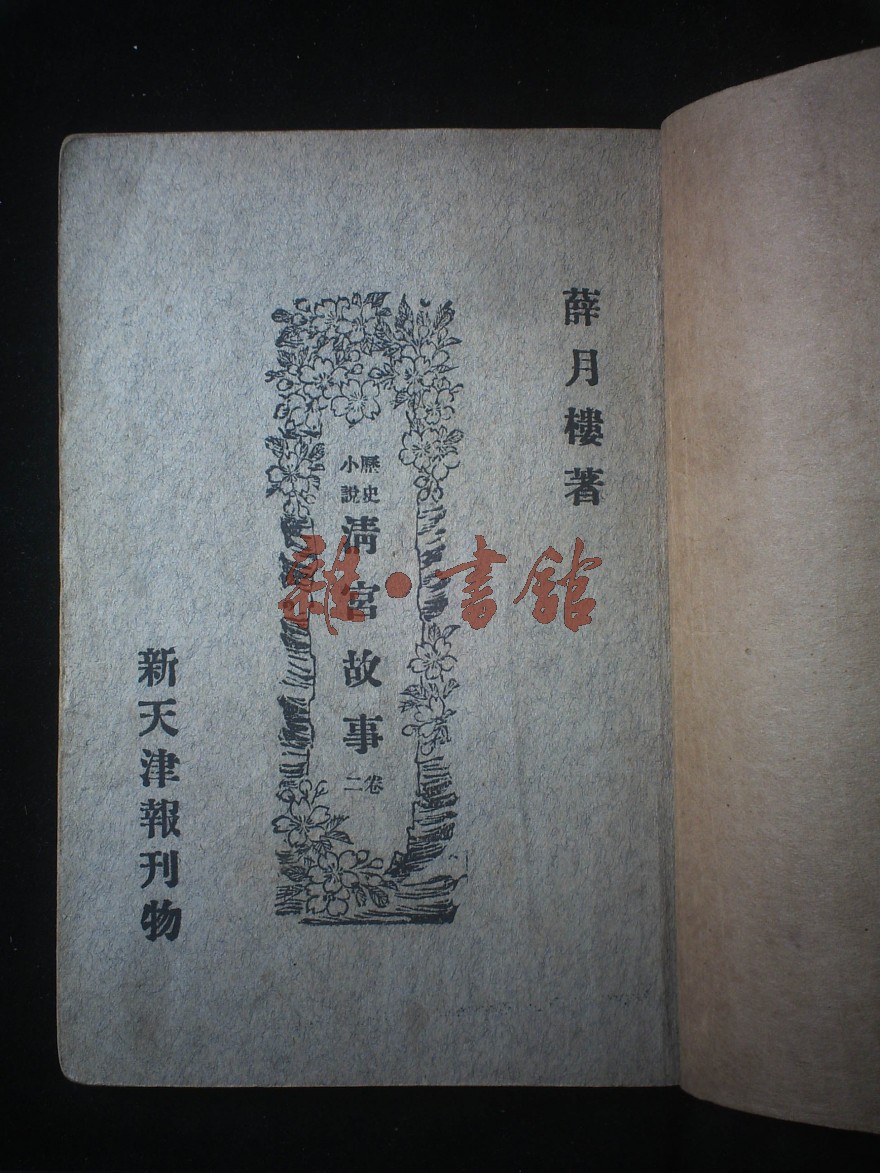 薛月樓著
歷史小說
清宮故事
卷二
新天津報刊物
雜·書館